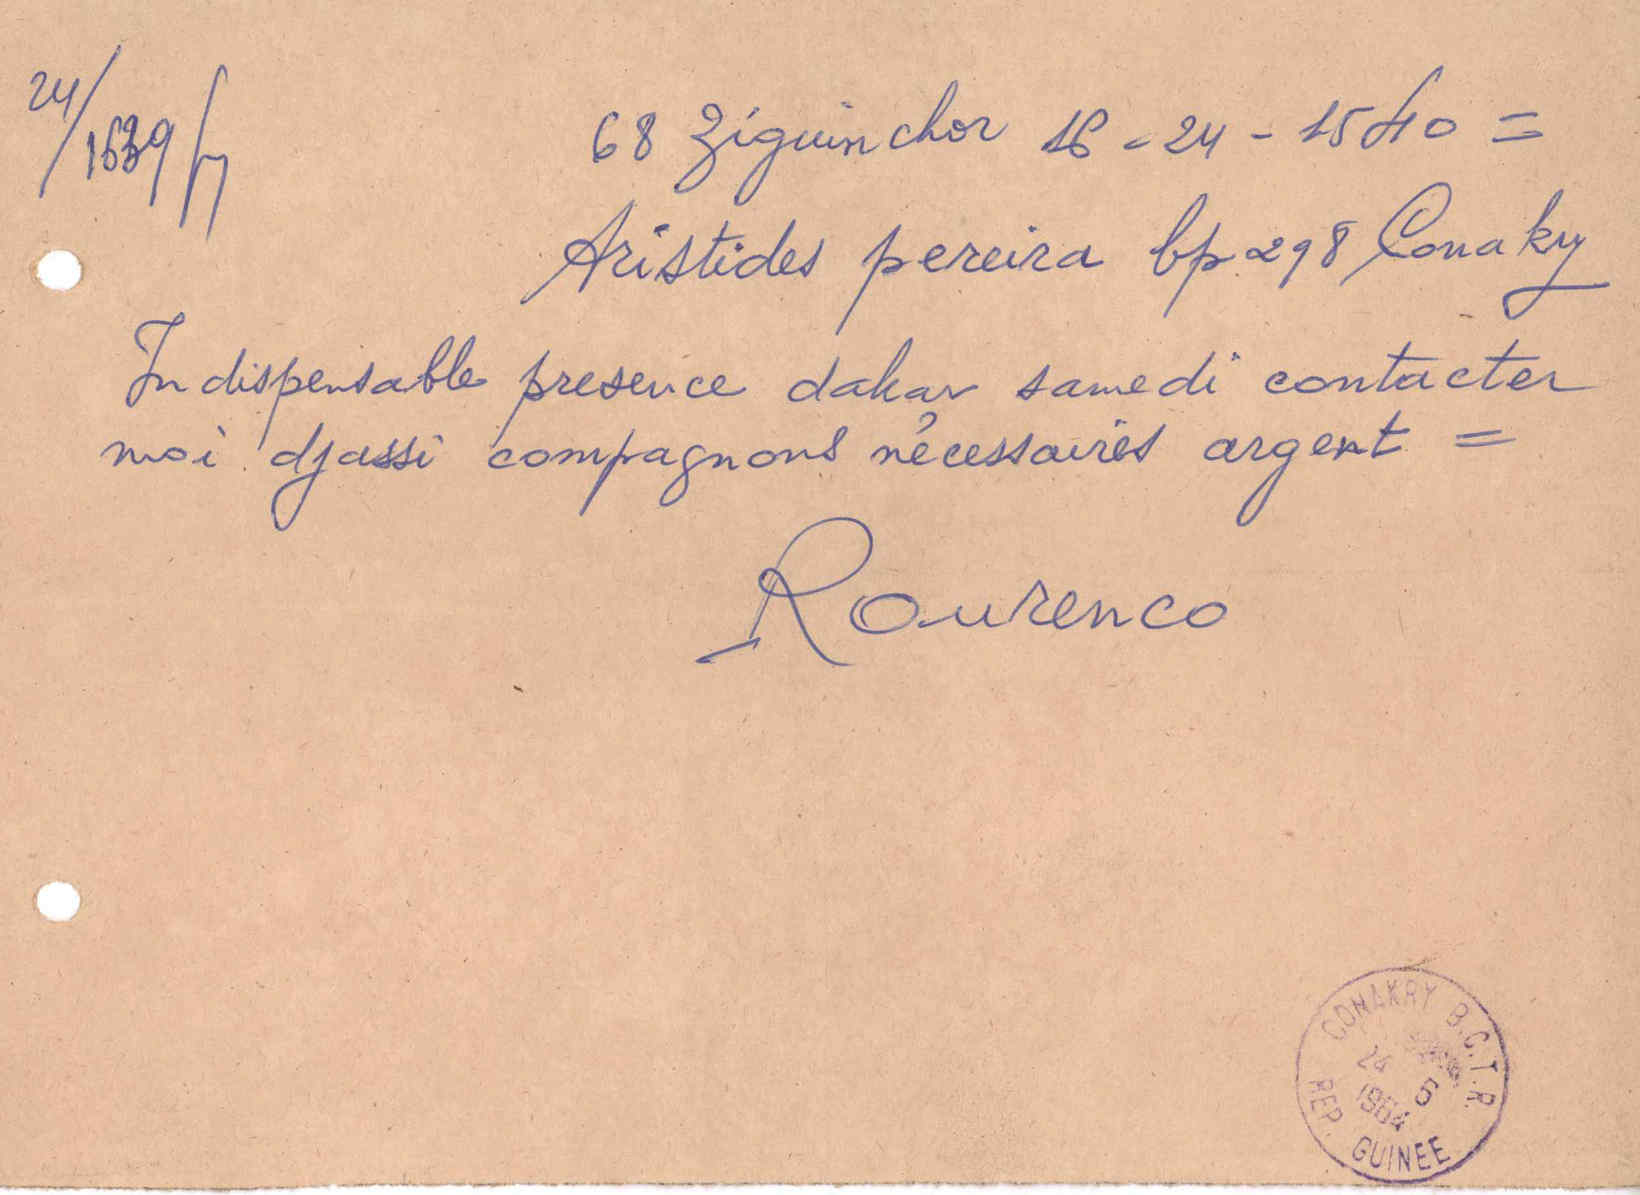 24/1639/
68 Ziguinchor 16 - 24 - 1540 =
Aristides pereira bp 298 Conakry
Indispensable presence dakar samedi contacter
moi djassi compagnons nécessaires argent =
Rourenco
CONAKRY B.C.T.R.
24 6
1964
REP. GUINEE